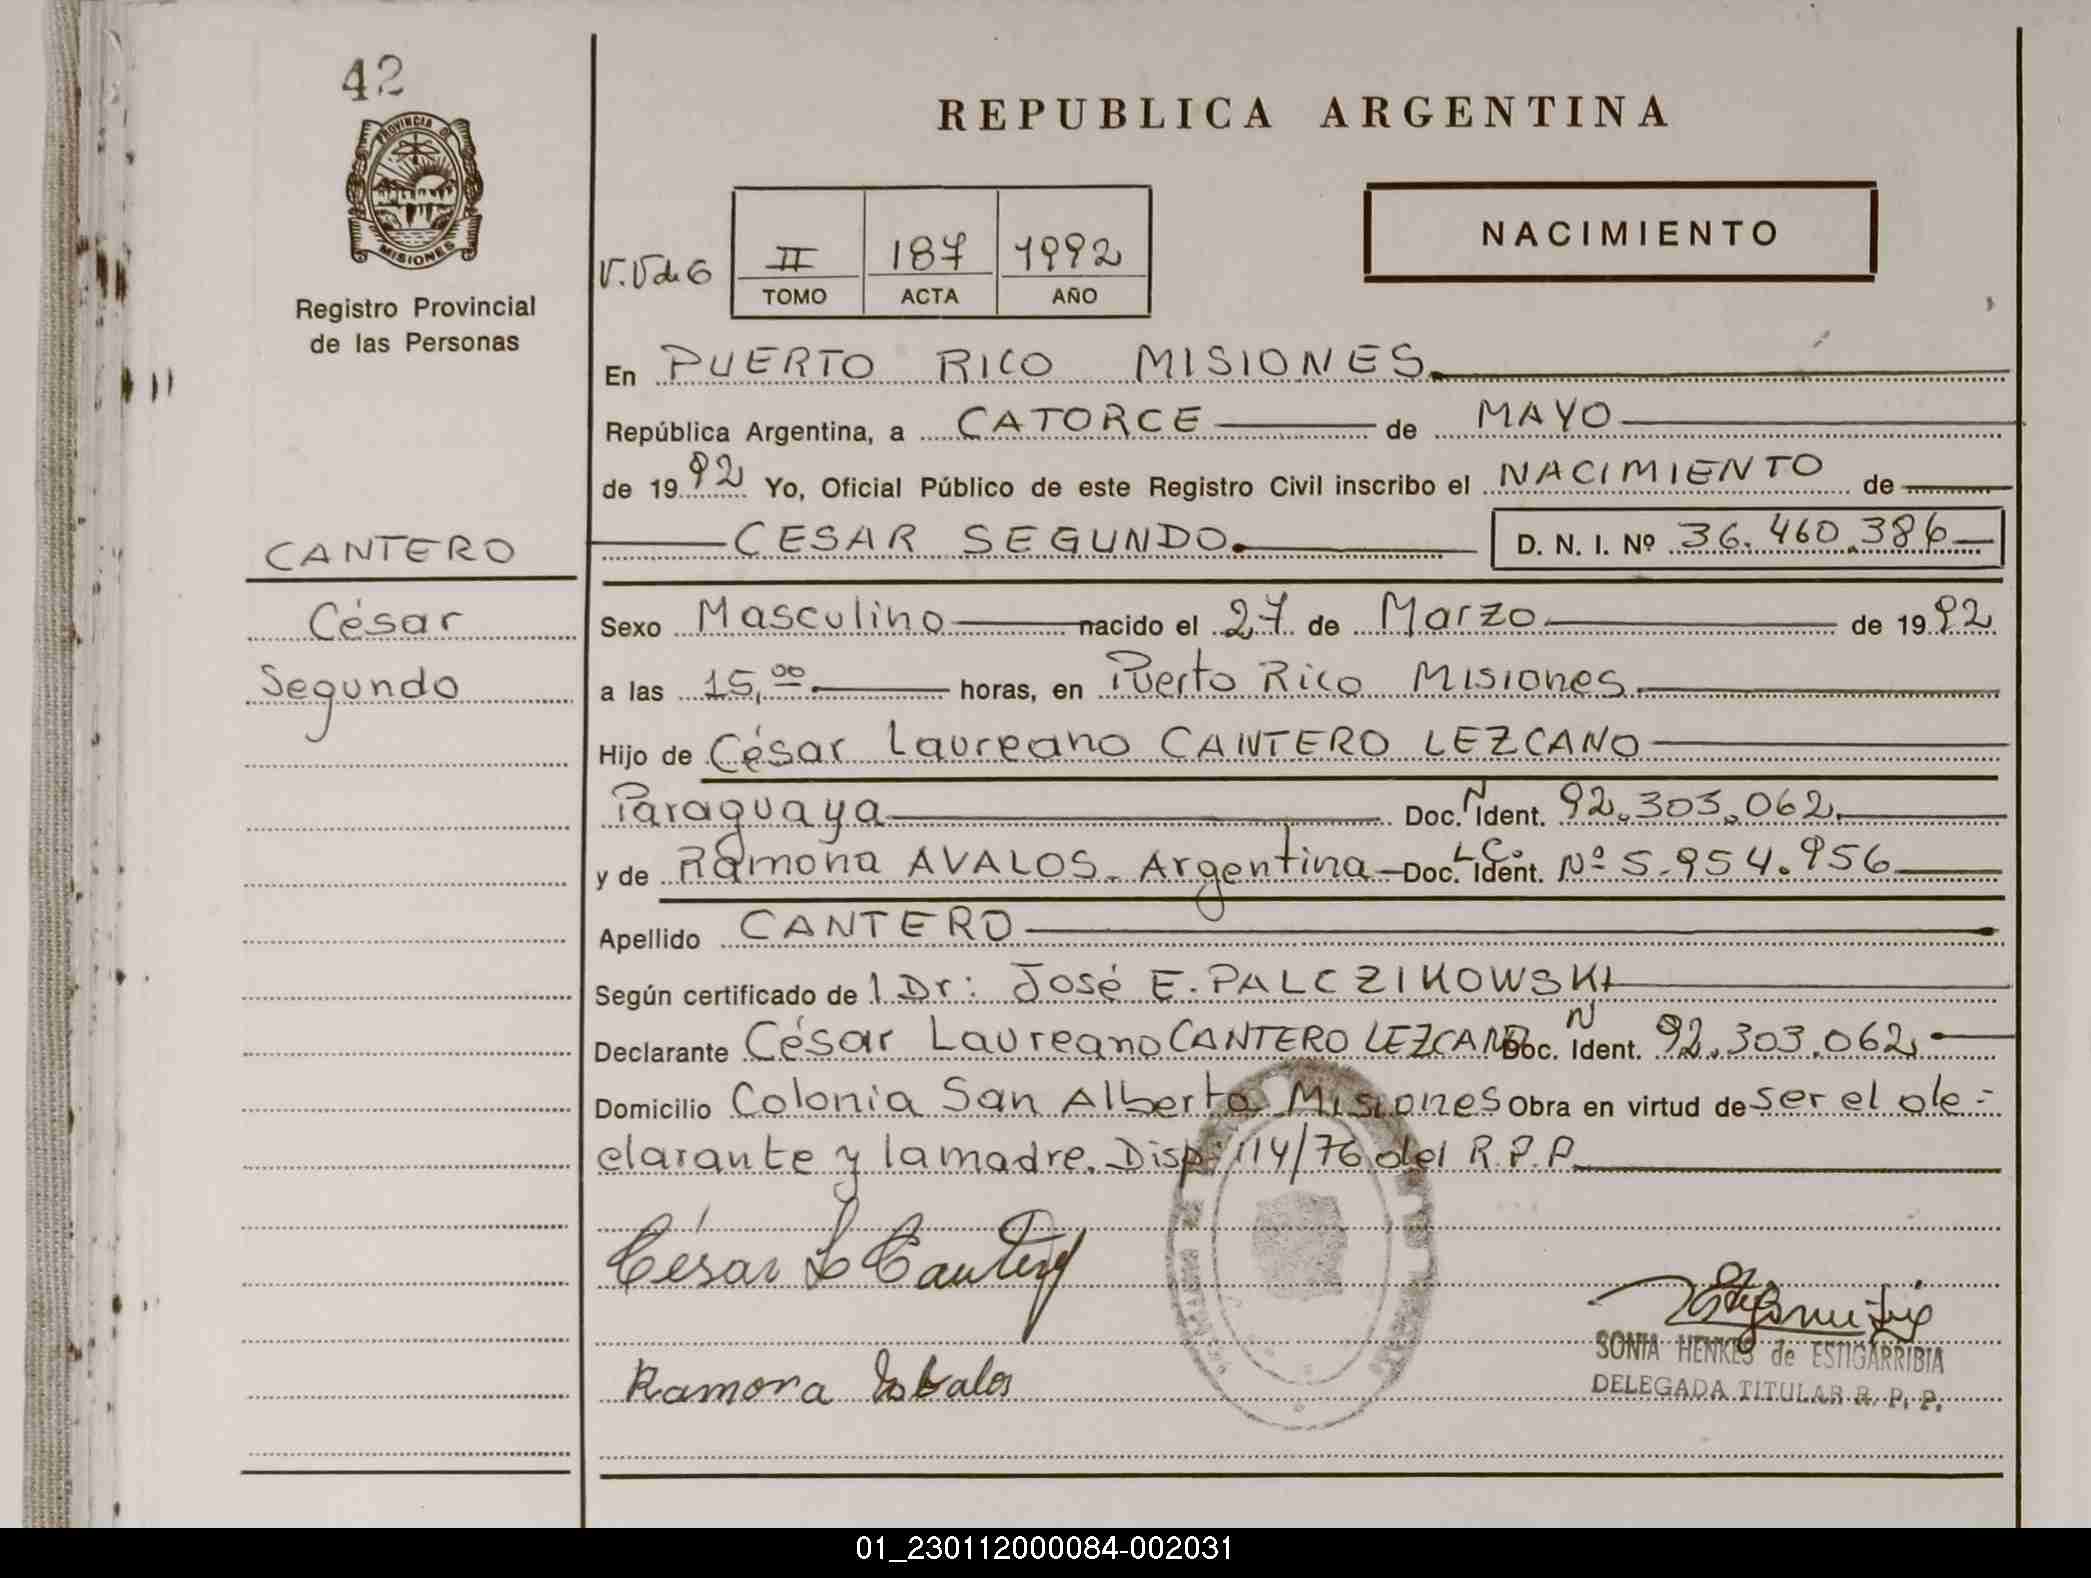 42
PROVINCIA DE
MISIONES
Registro Provincial
de las Personas
REPUBLICA ARGENTINA
NACIMIENTO
V.V de G
II 187 1992
TOMO ACTA AÑO
En PUERTO RICO MISIONES.
República Argentina, a CATORCE de MAYO
de 1992 Yo, Oficial Público de este Registro Civil inscribo el NACIMIENTO de
CESAR SEGUNDO. D. N. I. Nº 36.460.386
CANTERO
César
Segundo
Sexo Masculino nacido el 27 de Marzo de 1992
a las 15,00 horas, en Puerto Rico Misiones.
Hijo de César Laureano CANTERO LEZCANO
Paraguaya Doc. N Ident. 92.303.062.
y de Ramona AVALOS. Argentina Doc. L.C. Ident. Nº 5.954.956
Apellido CANTERO
Según certificado de l Dr: José E. PALCZIKOWSKI
Declarante César Laureano CANTERO LEZCANO Doc. N Ident. 92.303.062.
Domicilio Colonia San Alberto Misiones Obra en virtud de ser el de-
clarante y la madre. Disp: 114/76 del R.P.P.
César L Cantero
Ramona
SONIA HENKES de ESTIGARRIBIA
DELEGADA TITULAR R. P. P.
01_230112000084-002031